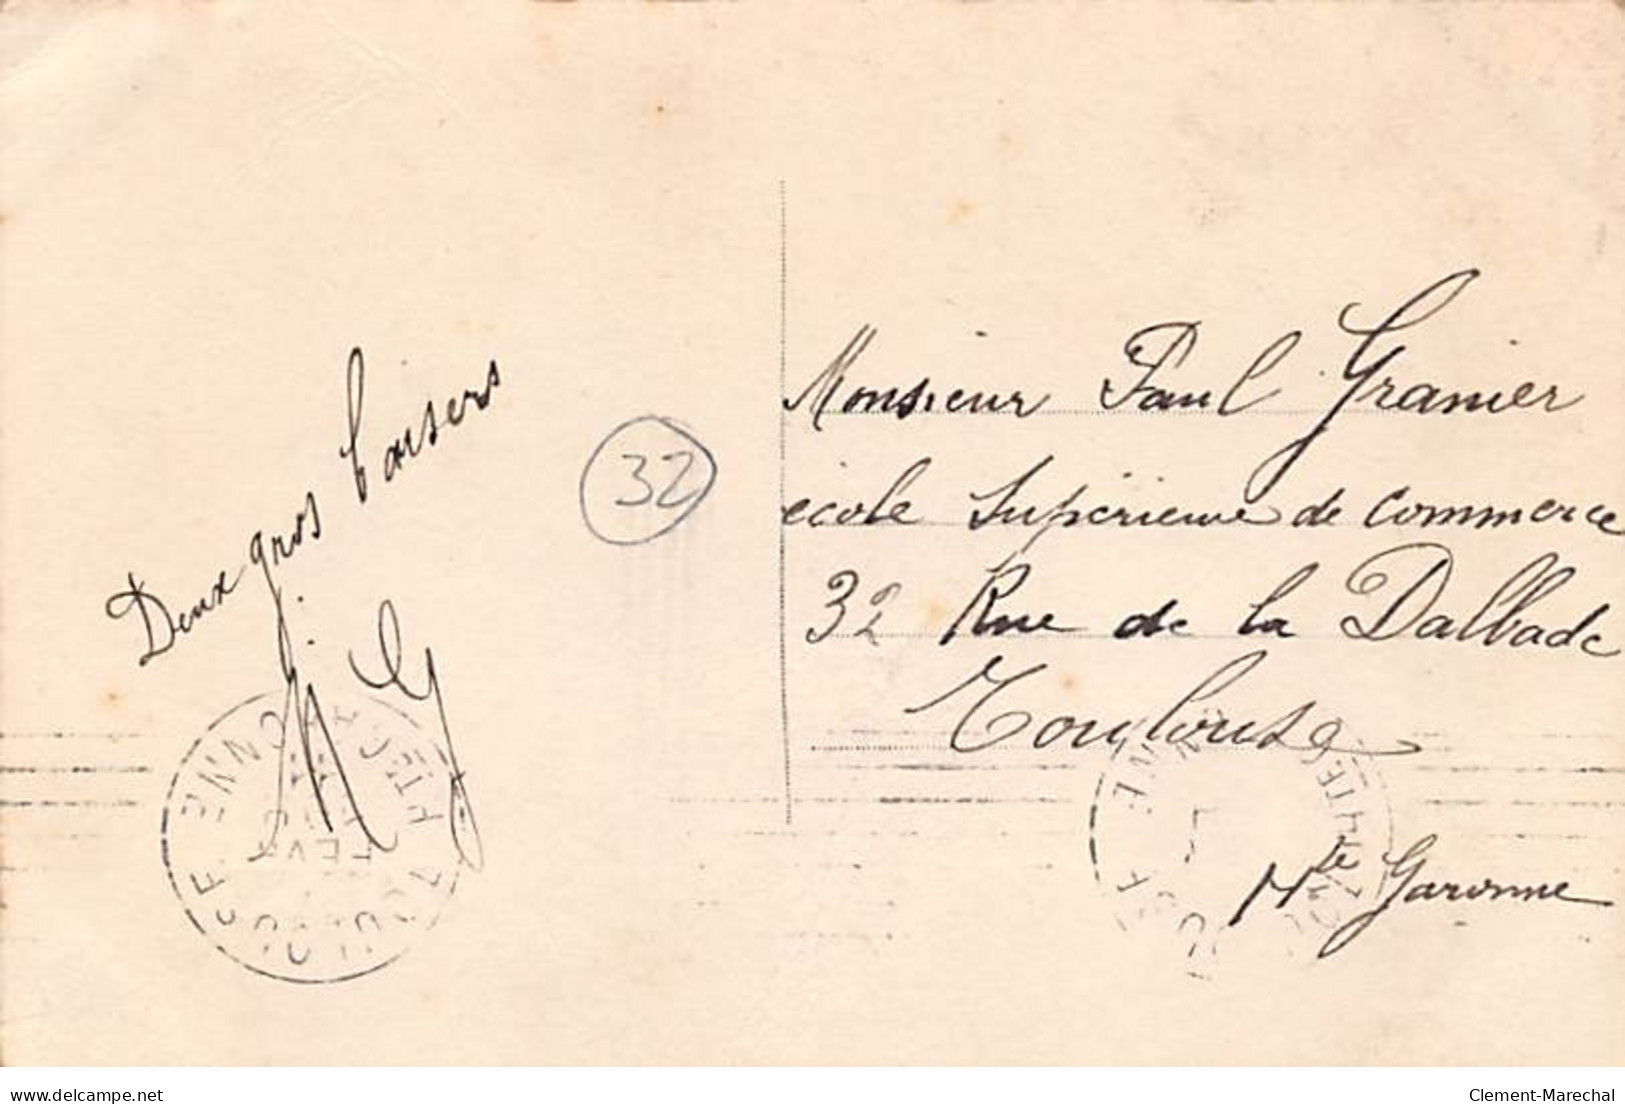 Deux gros baisers
32
Monsieur Paul Granier
école Supérieure de commerce
32 Rue de la Dalbade
Toulouse
Hte Garonne
delcampe.net
Clement-Marechal